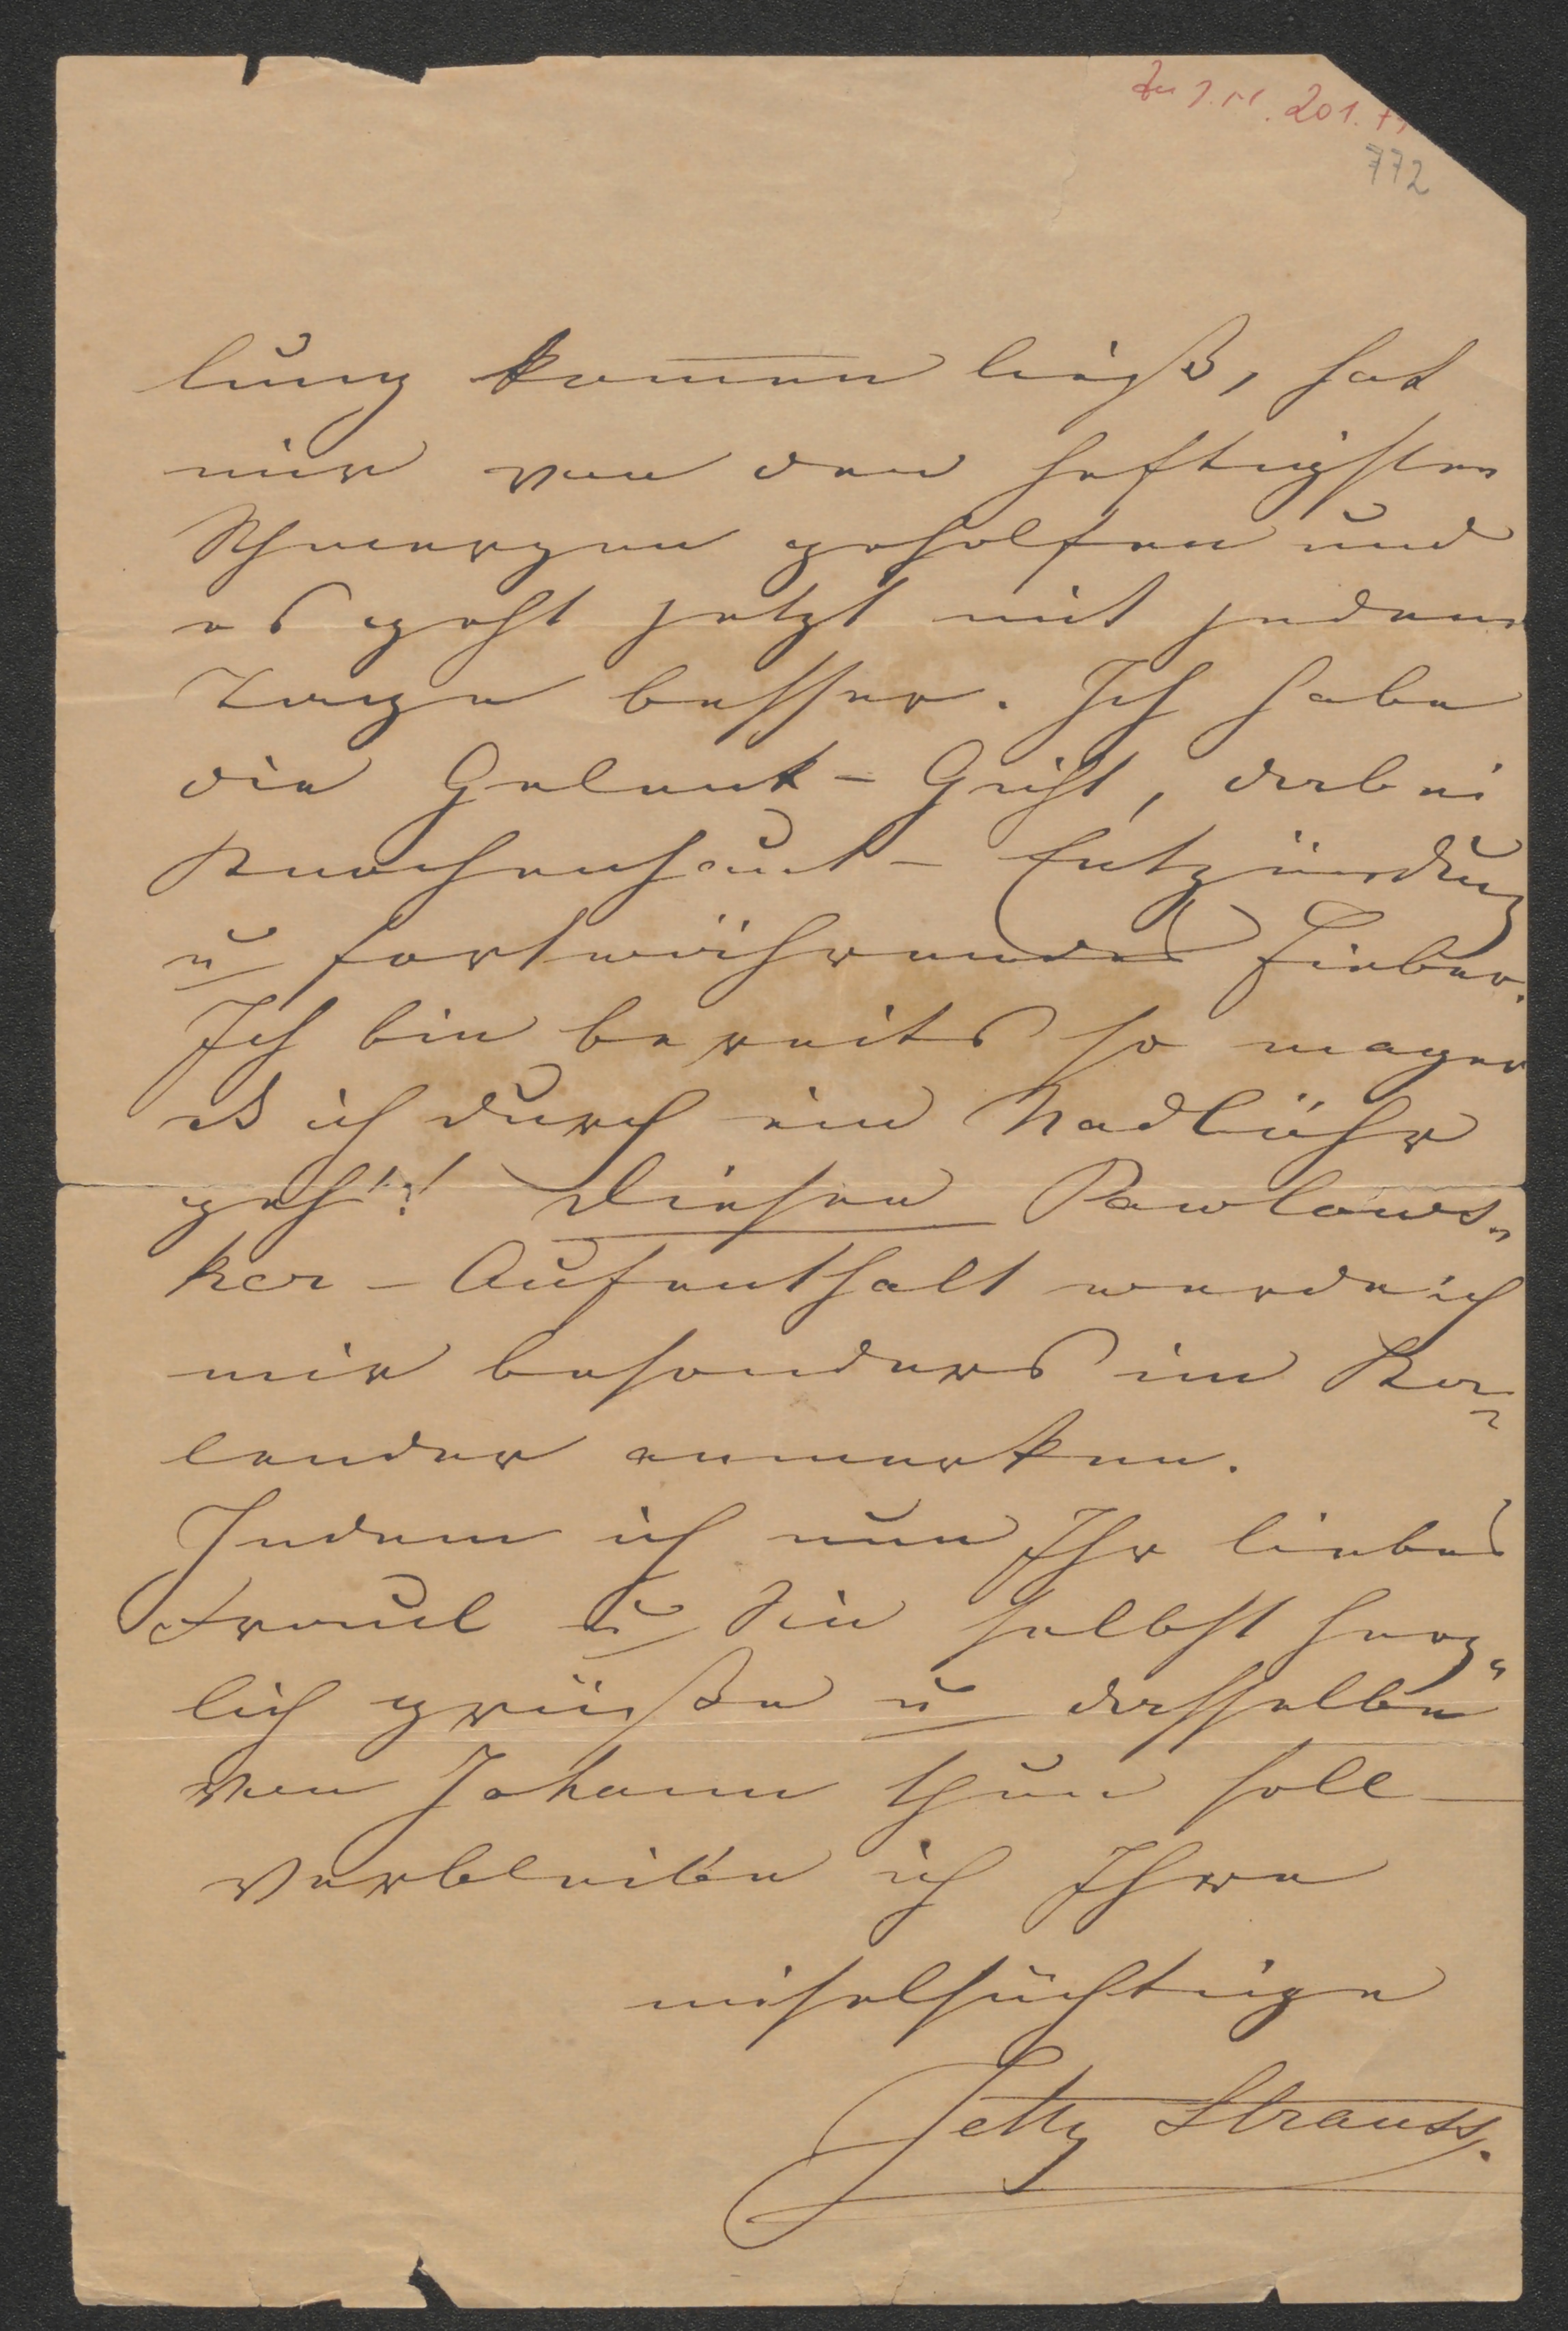 201.
772
lung kommen ließ, hat
mir von den heftigsten
Schmerzen geholfen und
es geht jetzt mit jedem
Tage besser. Ich habe
die Gelenk-Gicht, dabei
Knochenhaut-Entzündung
u fortwährendes Fieber.
Ich bin bereits so mager
ich durch ein Nadlöhr
geh'! Diesen Pawlows-
ker-Aufenthalt werde ich
mir besonders im Ka-
lender anmerken.
Indem ich nun Ihr liebes
Frauerl u Sie selbst herz-
lich grüße u dasselbe
von Johann thun soll
verbleibe ich Ihre
miselsüchtige
Jetty Strauss.